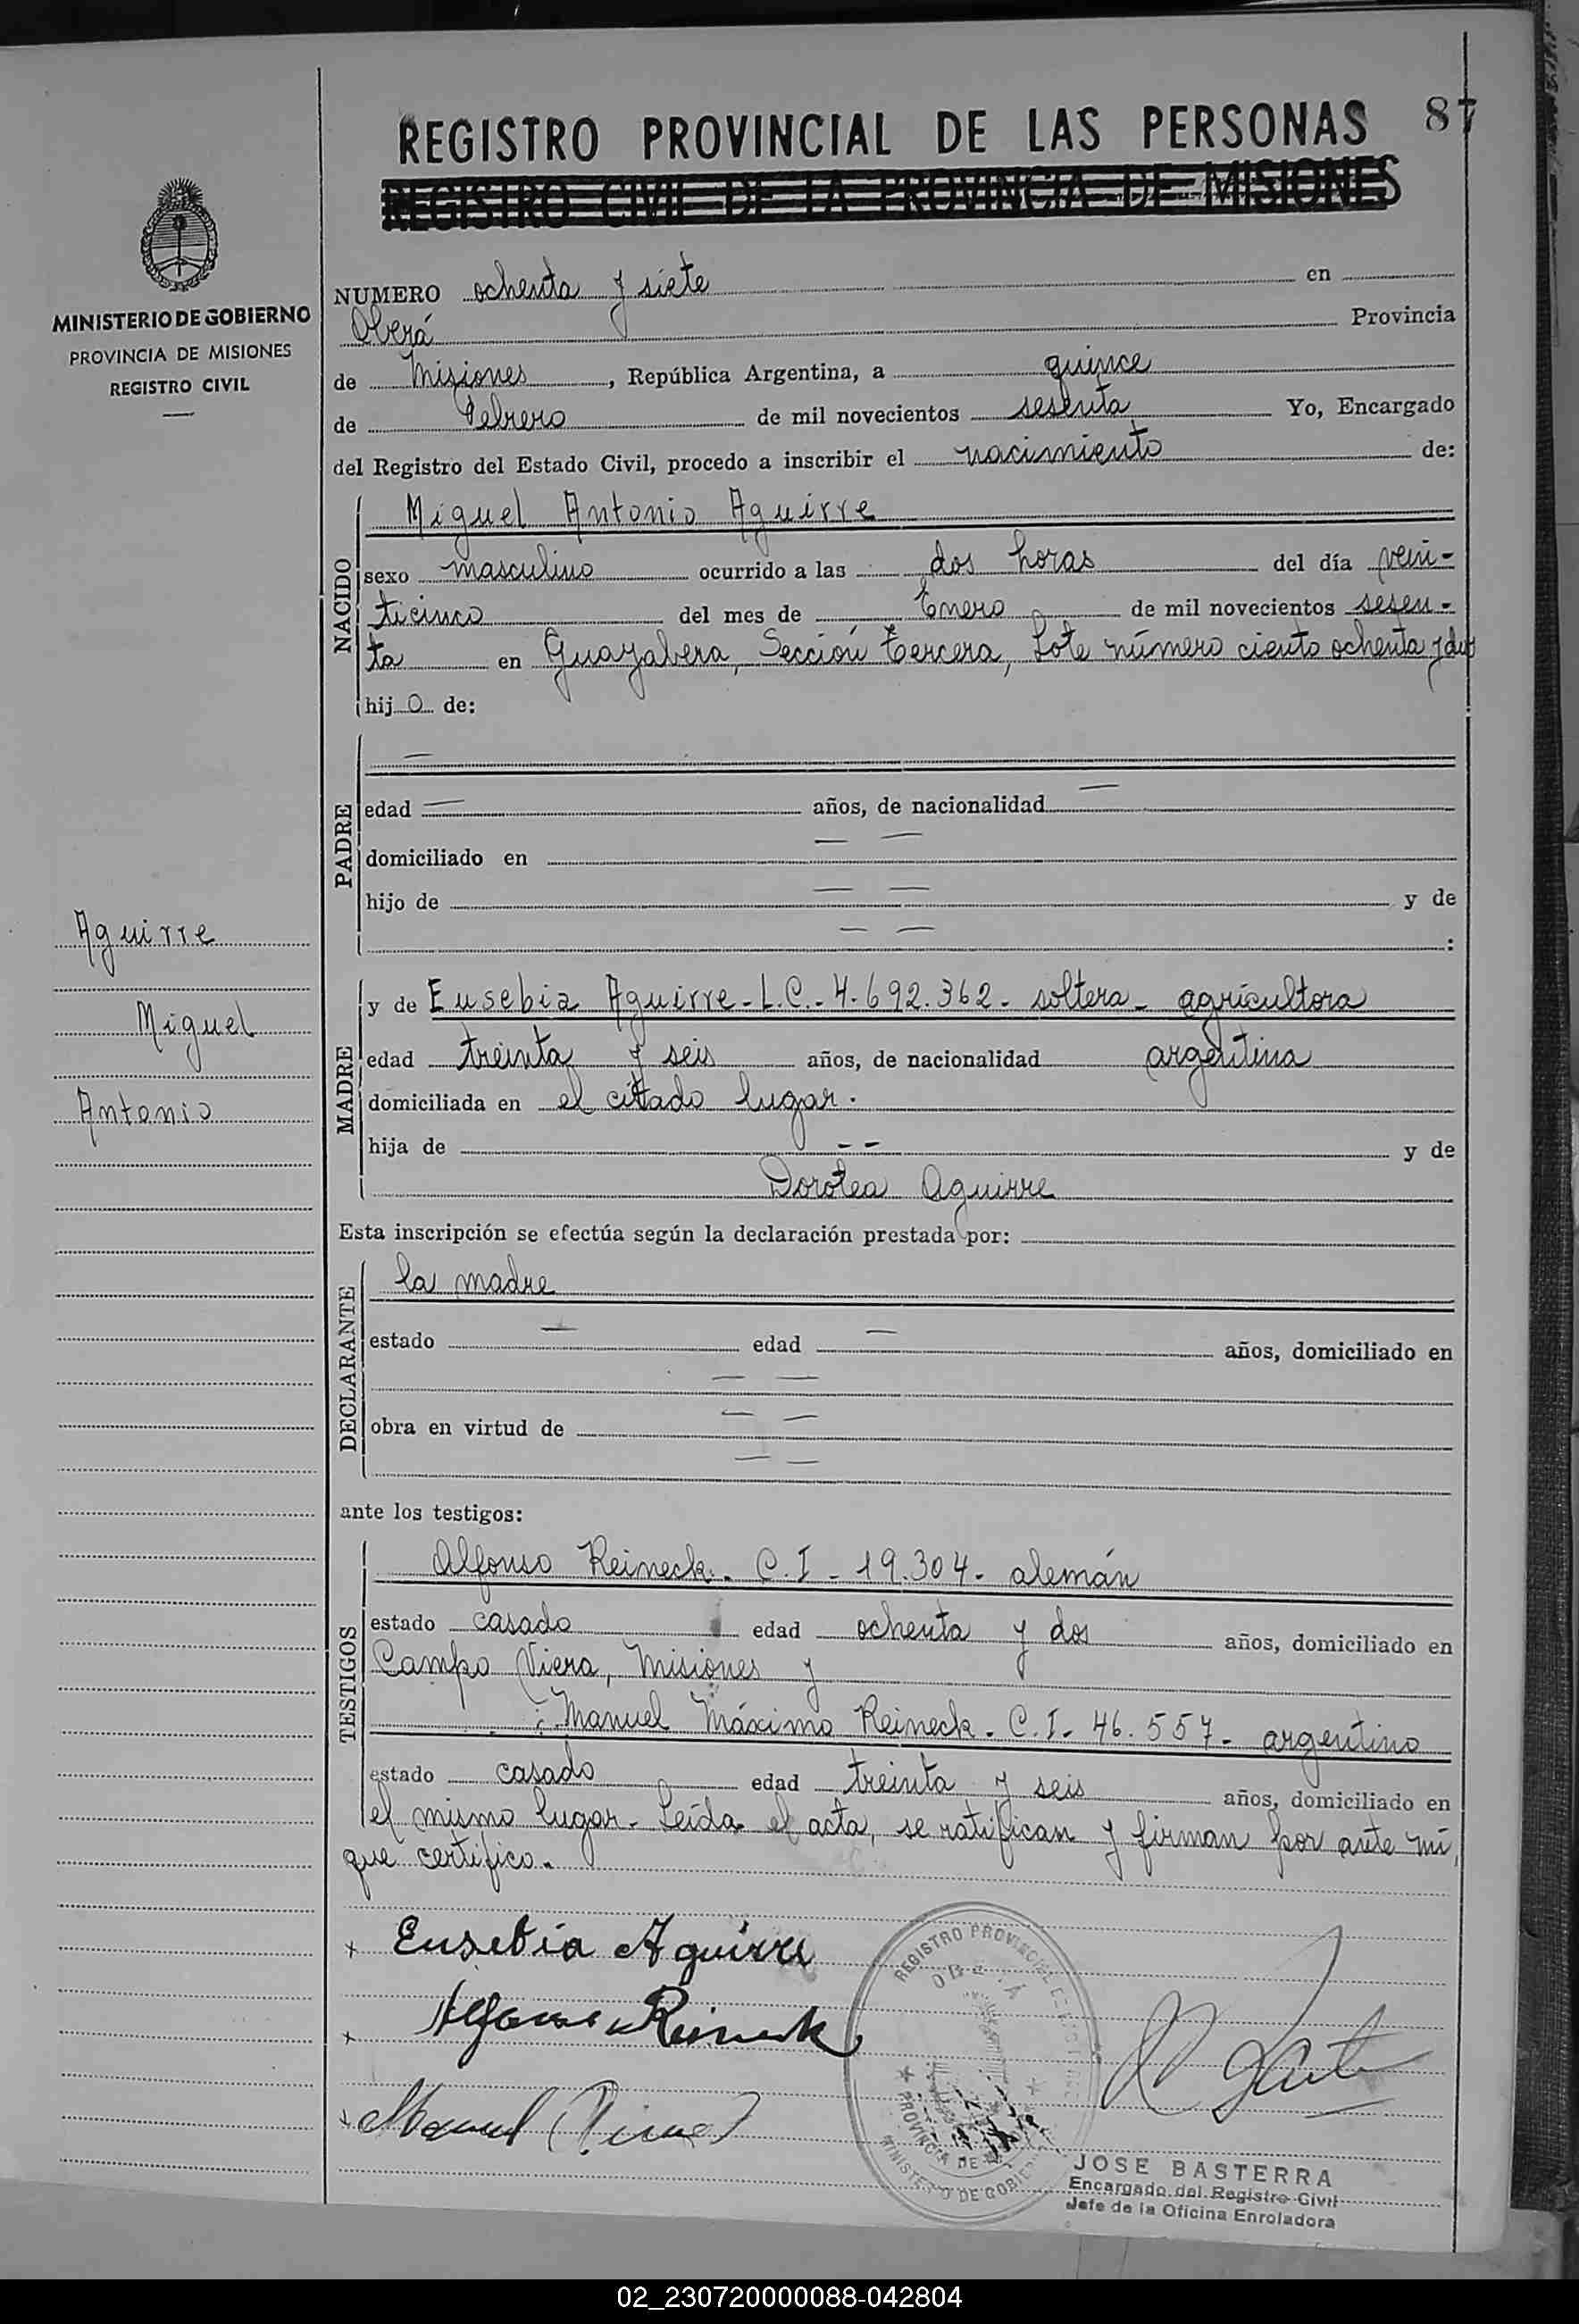 REGISTRO PROVINCIAL DE LAS PERSONAS 87
REGISTRO CIVIL DE LA PROVINCIA DE MISIONES
MINISTERIO DE GOBIERNO
PROVINCIA DE MISIONES
REGISTRO CIVIL
NUMERO ochenta y siete en
Oberá Provincia
de Misiones, República Argentina, a quince
de Febrero de mil novecientos sesenta Yo, Encargado
del Registro del Estado Civil, procedo a inscribir el nacimiento de:
NACIDO
Miguel Antonio Aguirre
sexo masculino ocurrido a las dos horas del día vein-
ticinco del mes de Enero de mil novecientos sesen-
ta en Guayabera, Sección tercera, Lote número ciento ochenta y dos
hijo de:
PADRE
—
edad — años, de nacionalidad —
domiciliado en — —
hijo de — — y de
— — :
Aguirre
Miguel
Antonio
MADRE
y de Eusebia Aguirre - L.C. - 4.692.362 - soltera - agricultora
edad treinta y seis años, de nacionalidad argentina
domiciliada en el citado lugar.
hija de - - y de
Dorotea Aguirre
Esta inscripción se efectúa según la declaración prestada por:
DECLARANTE
la madre
estado — edad — años, domiciliado en
— —
obra en virtud de — —
— —
ante los testigos:
TESTIGOS
Alfonso Reineck. C.I - 19.304 - alemán
estado casado edad ochenta y dos años, domiciliado en
Campo Viera, Misiones y
Manuel Máximo Reineck - C.I. - 46.557 - argentino
estado casado edad treinta y seis años, domiciliado en
el mismo lugar - Leída el acta, se ratifican y firman por ante mí,
que certifico.
Eusebia Aguirre
Alfonso Reineck
Manuel
REGISTRO PROVINCIAL
OBERÁ
PROVINCIA DE
MINISTERIO DE GOBIERNO
JOSE BASTERRA
Encargado del Registro Civil
Jefe de la Oficina Enroladora
02_230720000088-042804